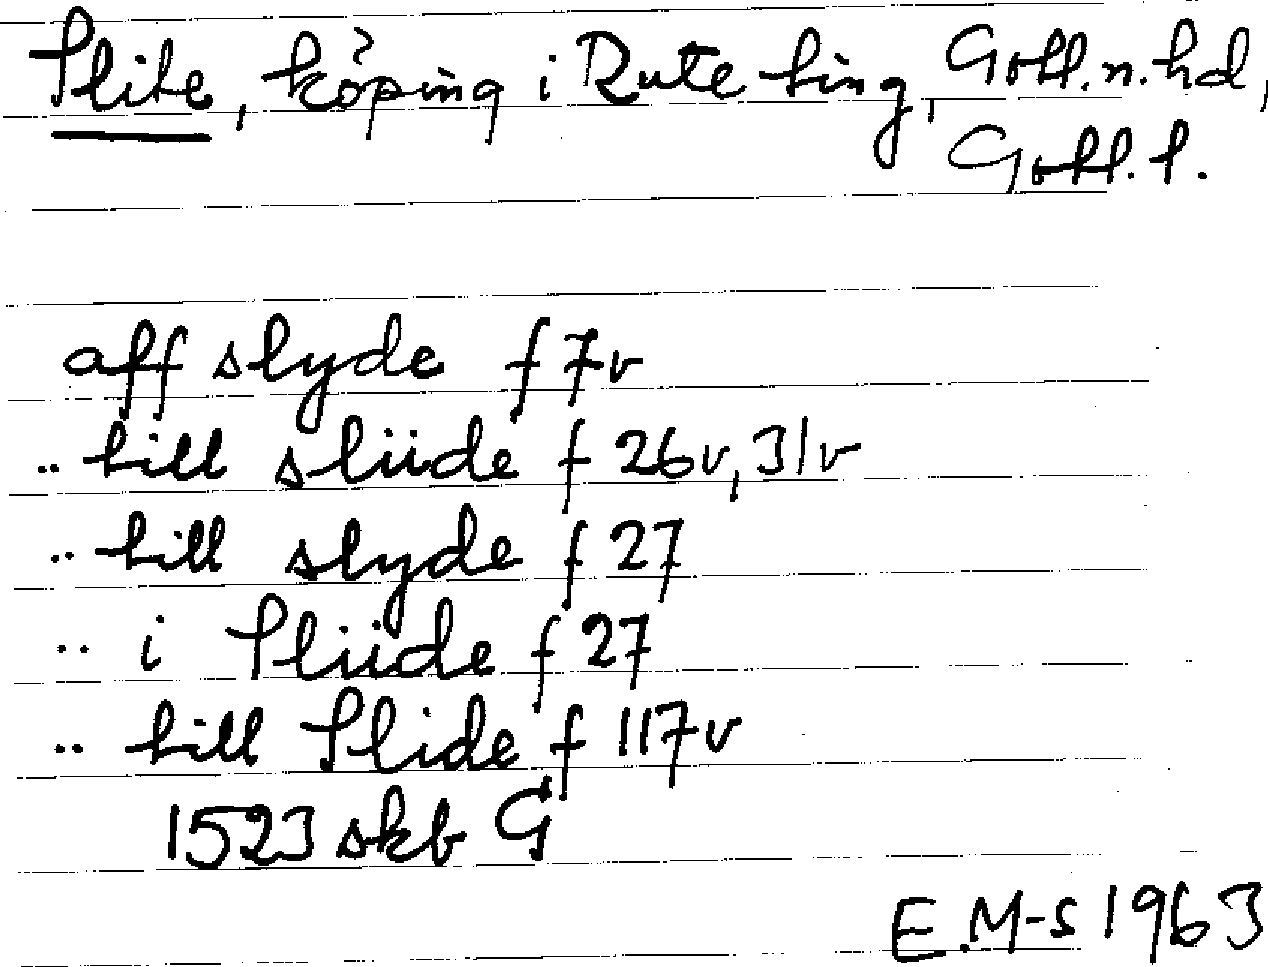 Slite, köping i Rute ting, Gotl. n. hd,
Gotl. l.
aff slyde f 7v
.. till slüde f 26v, 31v
.. till slyde f 27
.. i Slüde f 27
.. till Slide f 117v
1523 skb G
E. M-S 1963